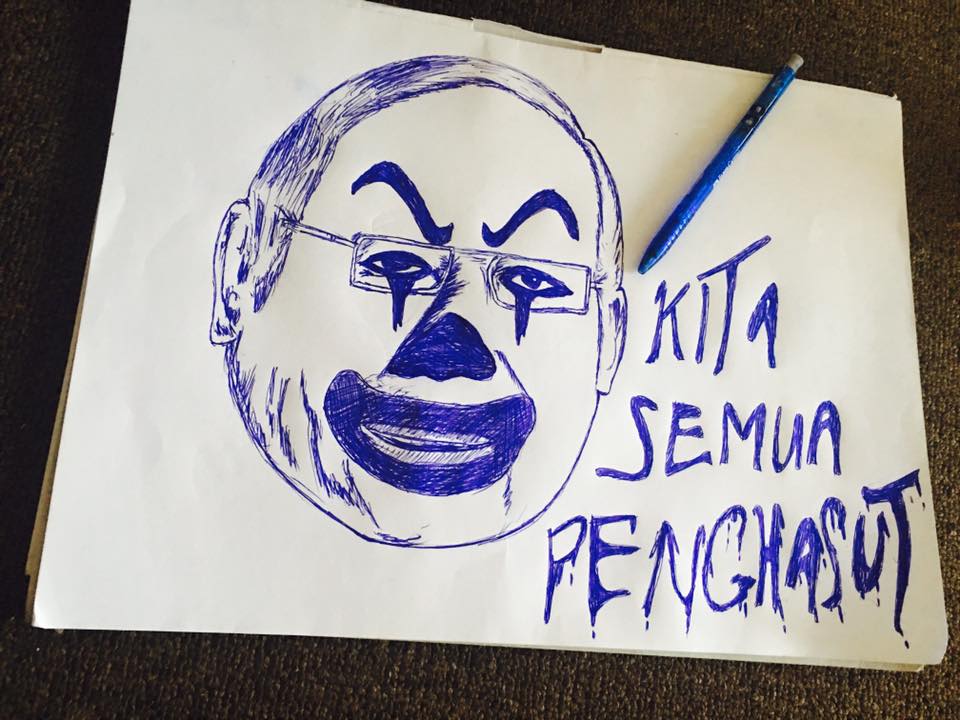 KITA
SEMUA
PENGHASUT